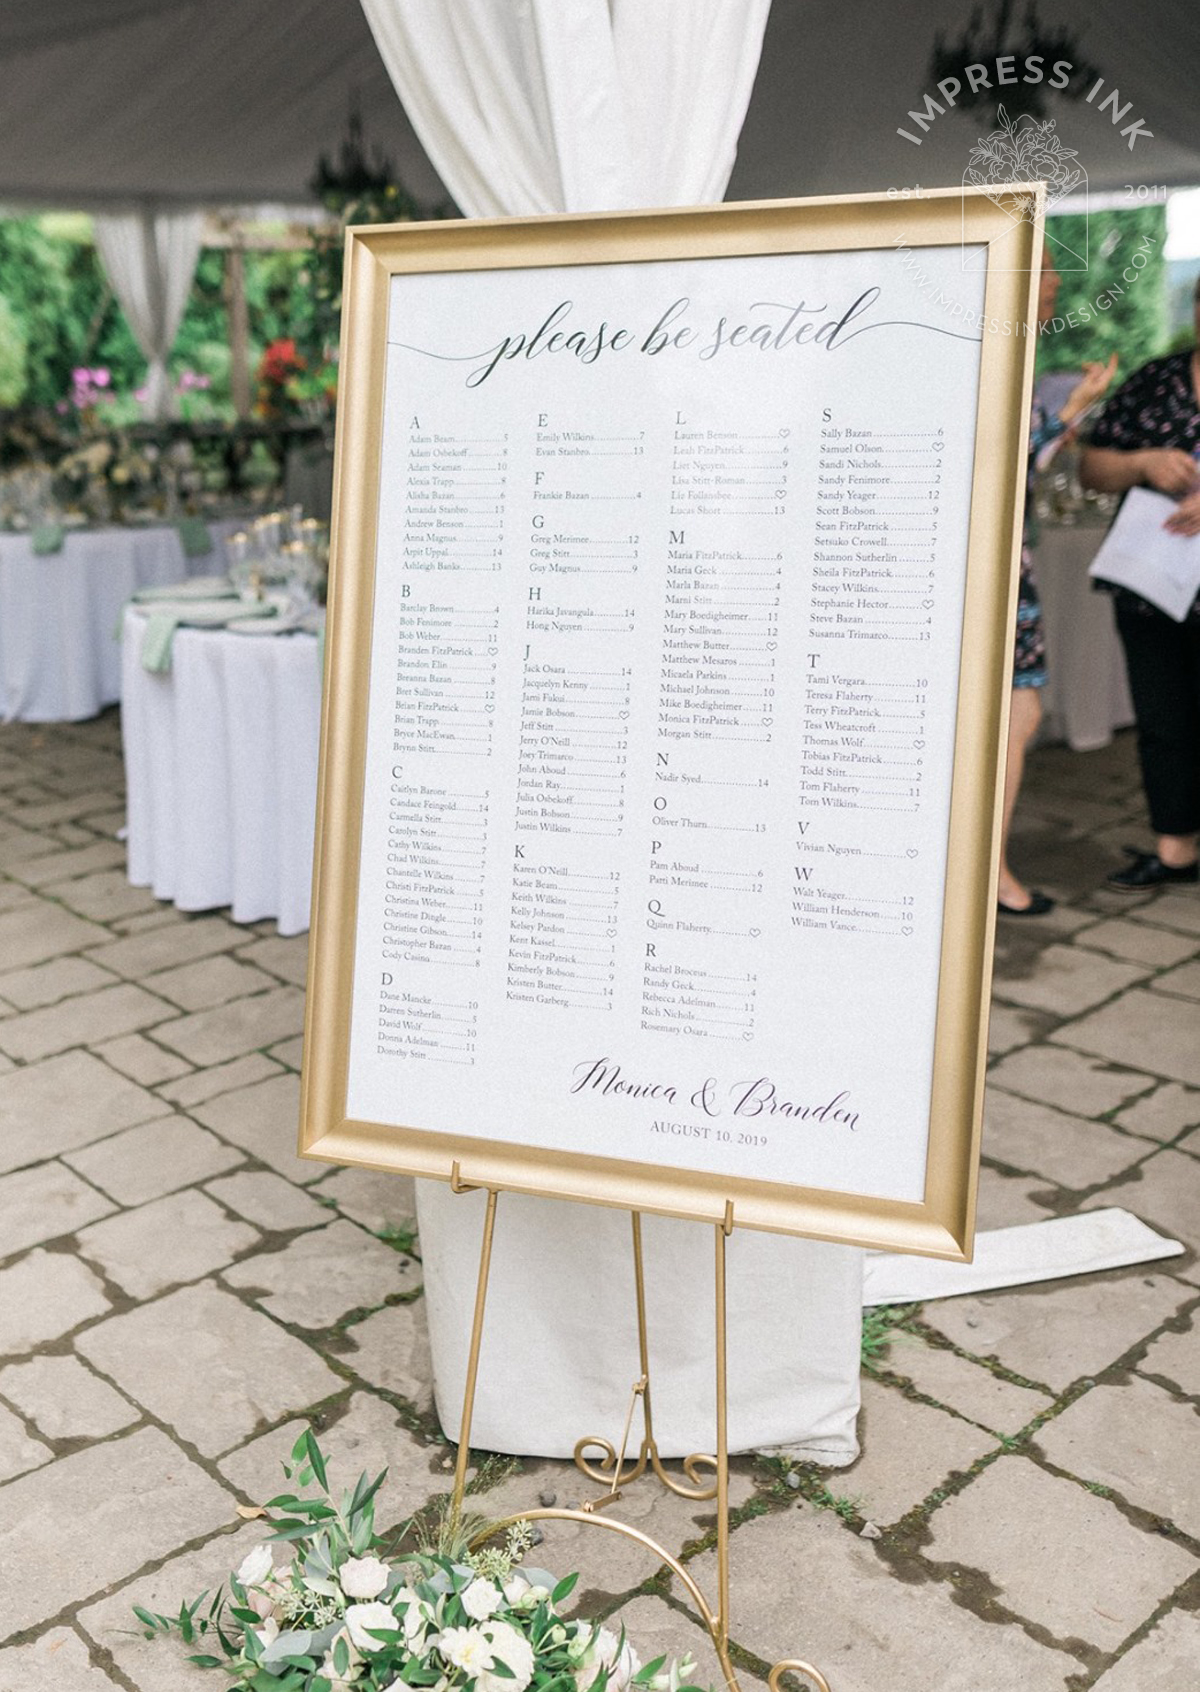 IMPRESS INK
est. 2011
WWW.IMPRESSINKDESIGN.COM
please be seated
A
Adam Beam 5
Adam Osbekoff 8
Adam Seaman 10
Alexis Trapp 8
Alisha Bazan 6
Amanda Stanbro 13
Andrew Benson 1
Anna Magnus 9
Arpit Uppal 14
Ashleigh Banks 13
B
Barclay Brown 4
Bob Fenimore 2
Bob Weber 11
Branden FitzPatrick ♡
Brandon Elin 9
Breanna Bazan 8
Bret Sullivan 12
Brian FitzPatrick ♡
Brian Trapp 8
Bryce MacEwan 1
Brynn Stitt 2
C
Caitlyn Barone 5
Candace Feingold 14
Carmella Stitt 3
Carolyn Stitt 3
Cathy Wilkins 7
Chad Wilkins 7
Chantelle Wilkins 7
Christi FitzPatrick 5
Christina Weber 11
Christine Dingle 10
Christine Gibson 14
Christopher Bazan 4
Cody Casino 8
D
Dane Mancke 10
Darren Sutherlin 5
David Wolf 10
Donna Adelman 11
Dorothy Stitt 3
E
Emily Wilkins 7
Evan Stanbro 13
F
Frankie Bazan 4
G
Greg Merimee 12
Greg Stitt 3
Guy Magnus 9
H
Harika Javangula 14
Hong Nguyen 9
J
Jack Osara 14
Jacquelyn Kenny 1
Jami Fukui 8
Jamie Bobson ♡
Jeff Stitt 3
Jerry O'Neill 12
Joey Trimarco 13
John Aboud 6
Jordan Ray 1
Julia Osbekoff 8
Justin Bobson 9
Justin Wilkins 7
K
Karen O'Neill 12
Katie Beam 5
Keith Wilkins 7
Kelly Johnson 13
Kelsey Pardon ♡
Kent Kassel 1
Kevin FitzPatrick 6
Kimberly Bobson 9
Kristen Butter 14
Kristen Garberg 3
L
Lauren Benson ♡
Leah FitzPatrick 6
Lier Nguyen 9
Lisa Stitt-Roman 3
Liz Follansbee ♡
Lucas Short 13
M
Maria FitzPatrick 6
Maria Geck 4
Marla Bazan 4
Marni Stitt 2
Mary Boedigheimer 11
Mary Sullivan 12
Matthew Butter ♡
Matthew Mesaros 1
Micaela Parkins 1
Michael Johnson 10
Mike Boedigheimer 11
Monica FitzPatrick ♡
Morgan Stitt 2
N
Nadir Syed 14
O
Oliver Thurn 13
P
Pam Aboud 6
Patti Merimee 12
Q
Quinn Flaherty ♡
R
Rachel Broceus 14
Randy Geck 4
Rebecca Adelman 11
Rich Nichols 2
Rosemary Osara ♡
S
Sally Bazan 6
Samuel Olson ♡
Sandi Nichols 2
Sandy Fenimore 2
Sandy Yeager 12
Scott Bobson 9
Sean FitzPatrick 5
Setsuko Crowell 7
Shannon Sutherlin 5
Sheila FitzPatrick 6
Stacey Wilkins 7
Stephanie Hector ♡
Steve Bazan 4
Susanna Trimarco 13
T
Tami Vergara 10
Teresa Flaherty 11
Terry FitzPatrick 5
Tess Wheatcroft 1
Thomas Wolf ♡
Tobias FitzPatrick 6
Todd Stitt 2
Tom Flaherty 11
Tom Wilkins 7
V
Vivian Nguyen ♡
W
Walt Yeager 12
William Henderson 10
William Vance ♡
Monica & Branden
AUGUST 10, 2019